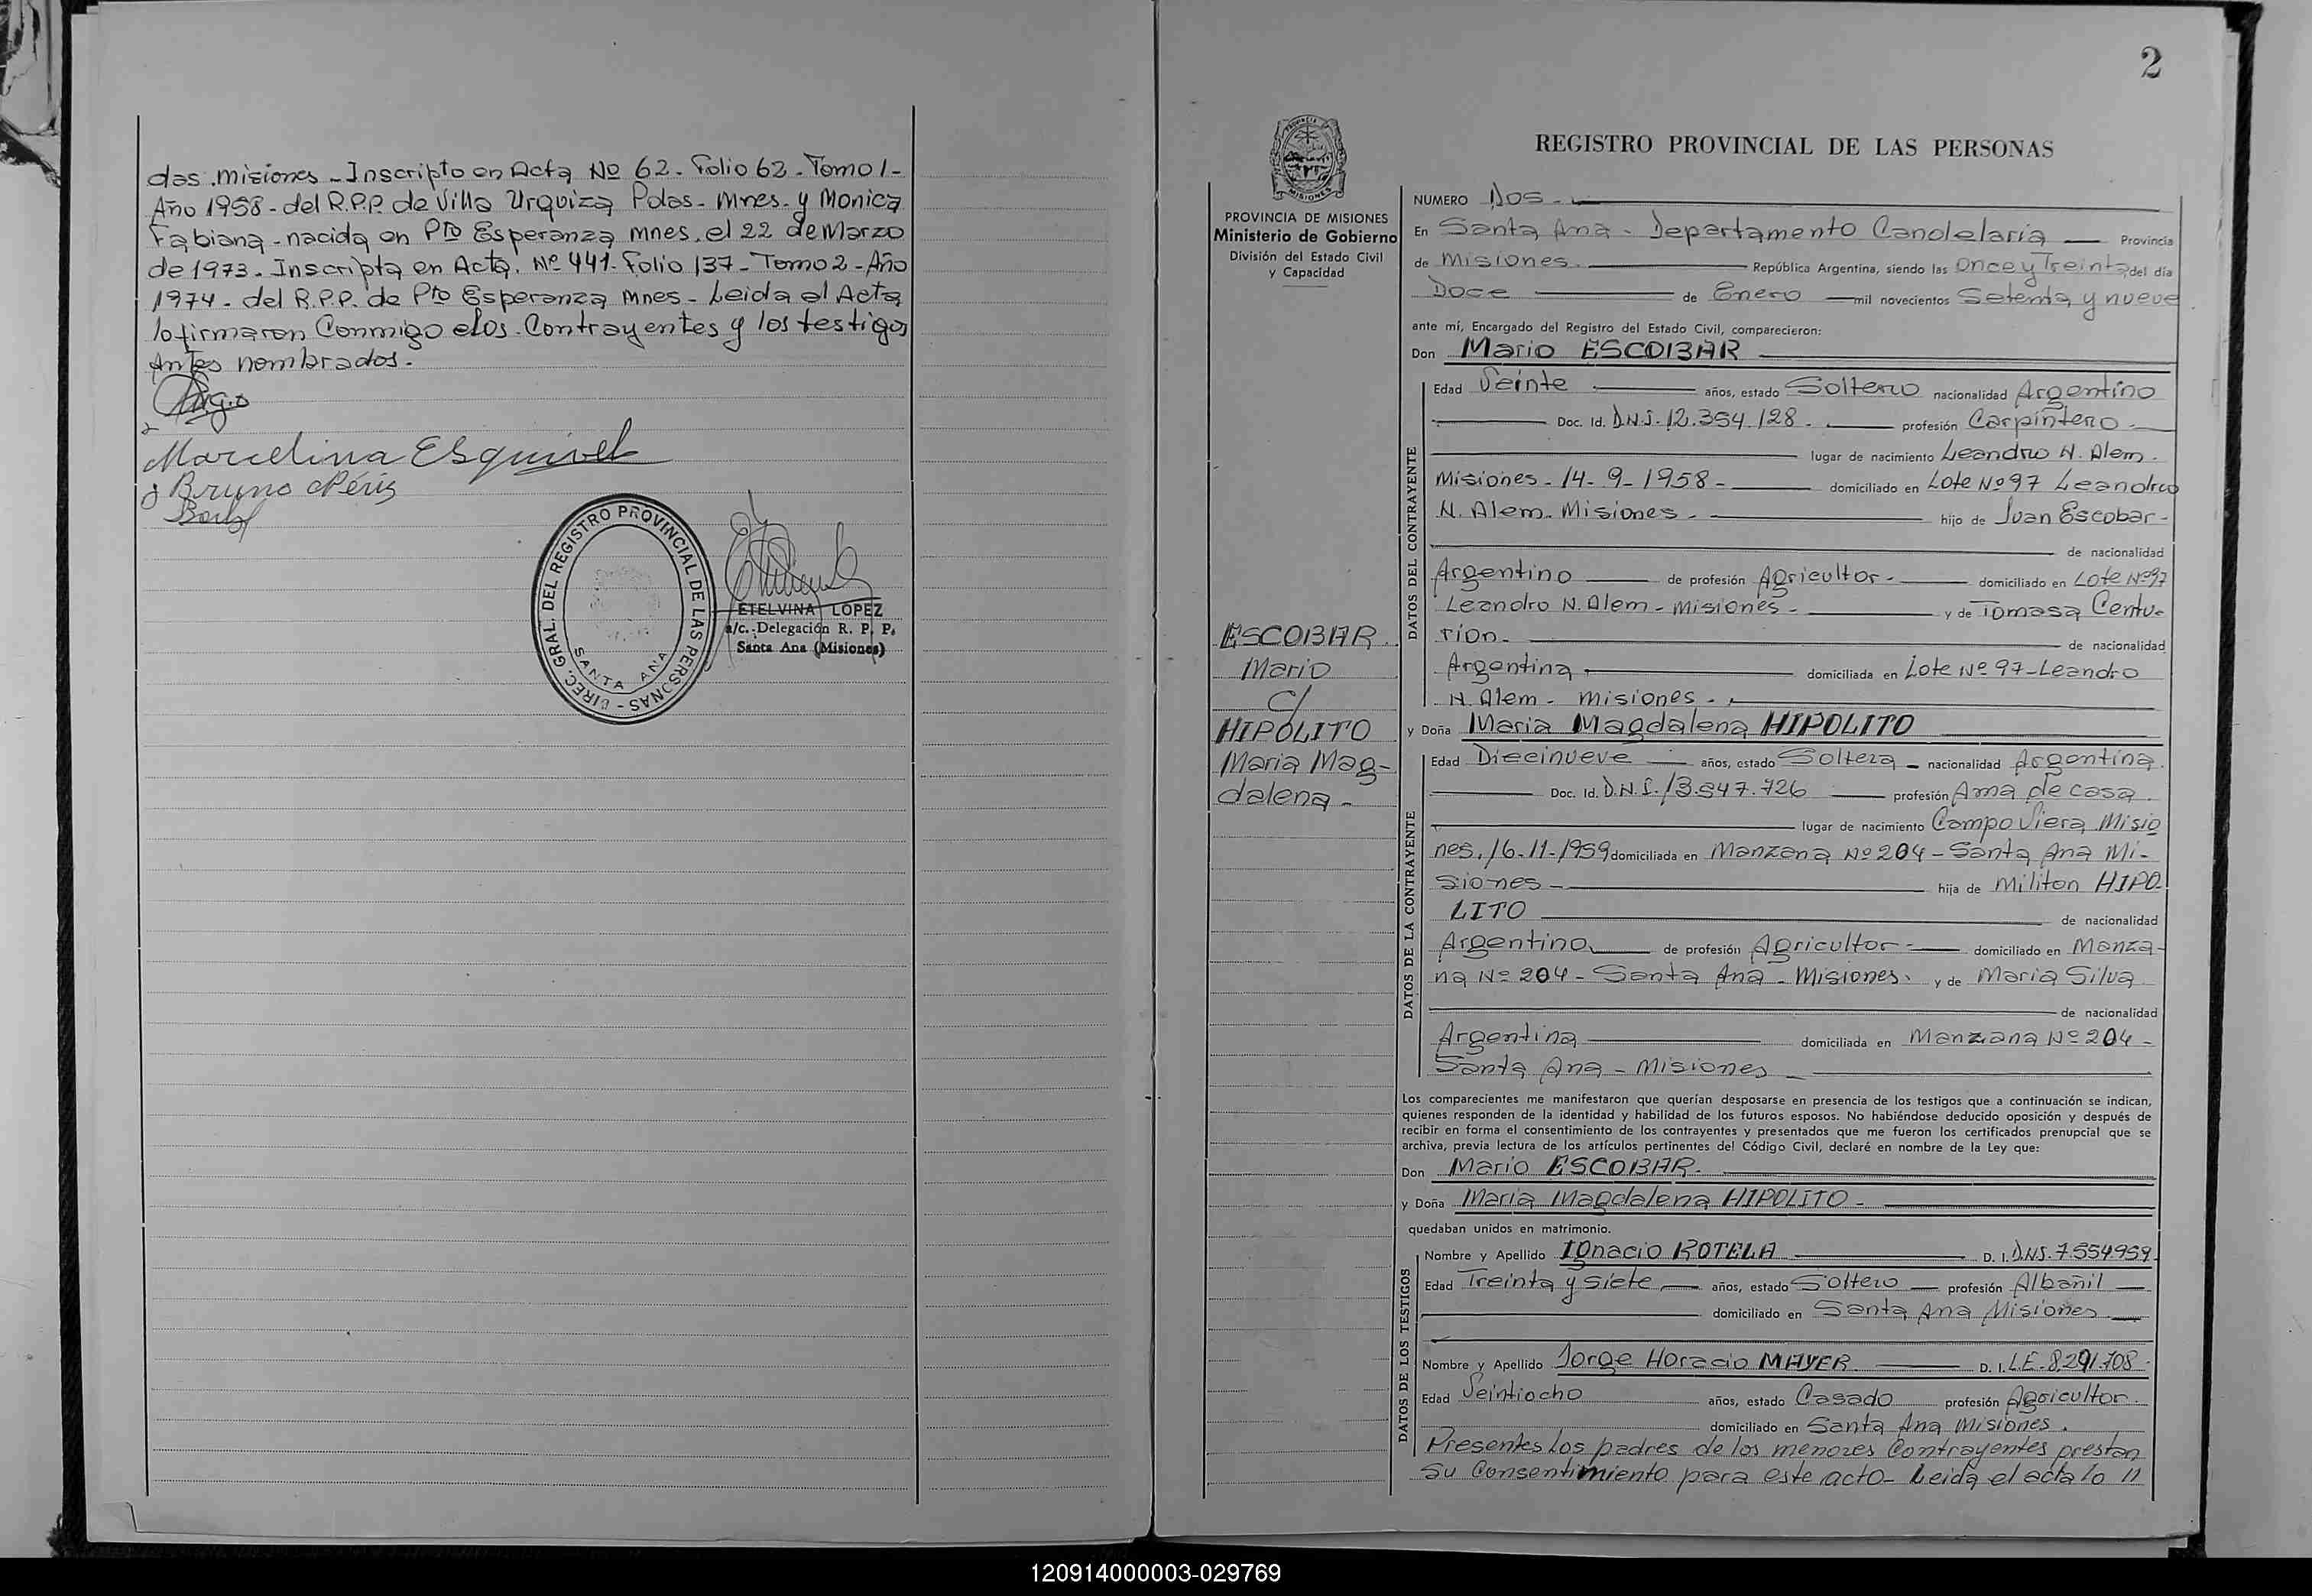 das. misiones - Inscripto en Acta Nº 62 - Folio 62 - Tomo 1 -
Año 1958 - del R.P.P. de Villa Urquiza Pdas - Mnes - y Monica
Fabiana - nacida en Pto Esperanza Mnes. el 22 de Marzo
de 1973 - Inscripta en Acta. Nº 441 - Folio 137 - Tomo 2 - Año
1974 - del R.P.P. de Pto Esperanza Mnes - Leida el Acta
lo firmaron Conmigo elos - Contrayentes y los testigos
Antes nombrados. -
Marcelina Esquivel
Bruno
DIREC. GRAL. DEL REGISTRO PROVINCIAL DE LAS PERSONAS -
SANTA ANA
ETELVINA LOPEZ
a/c. Delegación R. P. P.
Santa Ana (Misiones)
2
REGISTRO PROVINCIAL DE LAS PERSONAS
PROVINCIA DE MISIONES
Ministerio de Gobierno
División del Estado Civil
y Capacidad
ESCOBAR
Mario
C/
HIPOLITO
Maria Mag-
dalena -
NUMERO Dos -
En Santa Ana - Departamento Candelaria Provincia
de Misiones República Argentina, siendo las Once y Treinta del día
Doce de Enero mil novecientos Setenta y nueve
ante mí, Encargado del Registro del Estado Civil, comparecieron:
Don Mario ESCOBAR
DATOS DEL CONTRAYENTE
Edad Veinte años, estado Soltero nacionalidad Argentino
Doc. Id. D.N.I. 12.354.128 - profesión Carpintero -
lugar de nacimiento Leandro N. Alem -
Misiones - 14 - 9 - 1958 - domiciliado en Lote Nº 97 Leandro
N. Alem - Misiones - hijo de Juan Escobar -
de nacionalidad
Argentino de profesión Agricultor - domiciliado en Lote Nº 97
Leandro N. Alem - Misiones - y de Tomasa Centu-
rion - de nacionalidad
Argentina domiciliada en Lote Nº 97 - Leandro
N. Alem - Misiones -
y Doña Maria Magdalena HIPOLITO
DATOS DE LA CONTRAYENTE
Edad Diecinueve años, estado Soltera nacionalidad Argentina
Doc. Id. D.N.I. 13.547.726 profesión Ama de casa
lugar de nacimiento Campo Viera Misio
nes. 16 - 11 - 1959 domiciliada en Manzana Nº 204 - Santa Ana Mi-
siones - hija de Militon HIPO-
LITO de nacionalidad
Argentino de profesión Agricultor - domiciliado en Manza-
na Nº 204 - Santa Ana - Misiones - y de Maria Silva
de nacionalidad
Argentina domiciliada en Manzana Nº 204 -
Santa Ana - Misiones -
Los comparecientes me manifestaron que querían desposarse en presencia de los testigos que a continuación se indican,
quienes responden de la identidad y habilidad de los futuros esposos. No habiéndose deducido oposición y después de
recibir en forma el consentimiento de los contrayentes y presentados que me fueron los certificados prenupcial que se
archiva, previa lectura de los artículos pertinentes del Código Civil, declaré en nombre de la Ley que:
Don Mario ESCOBAR -
y Doña Maria Magdalena HIPOLITO -
quedaban unidos en matrimonio.
DATOS DE LOS TESTIGOS
Nombre y Apellido Ignacio ROTELA D. I. D.N.I. 7.554959
Edad Treinta y siete años, estado Soltero profesión Albañil
domiciliado en Santa Ana Misiones
Nombre y Apellido Jorge Horacio MAYER D. I. L.E. 8.291.708
Edad Veintiocho años, estado Casado profesión Agricultor
domiciliado en Santa Ana Misiones.
Presentes los padres de los menores Contrayentes prestan
su Consentimiento para este acto - Leida el acta lo //
120914000003-029769